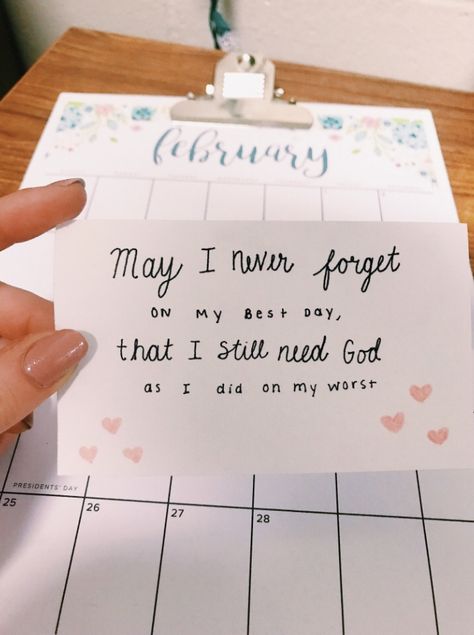 february
May I never forget
on my best day,
that I still need God
as I did on my worst
PRESIDENTS' DAY
25 26 27 28